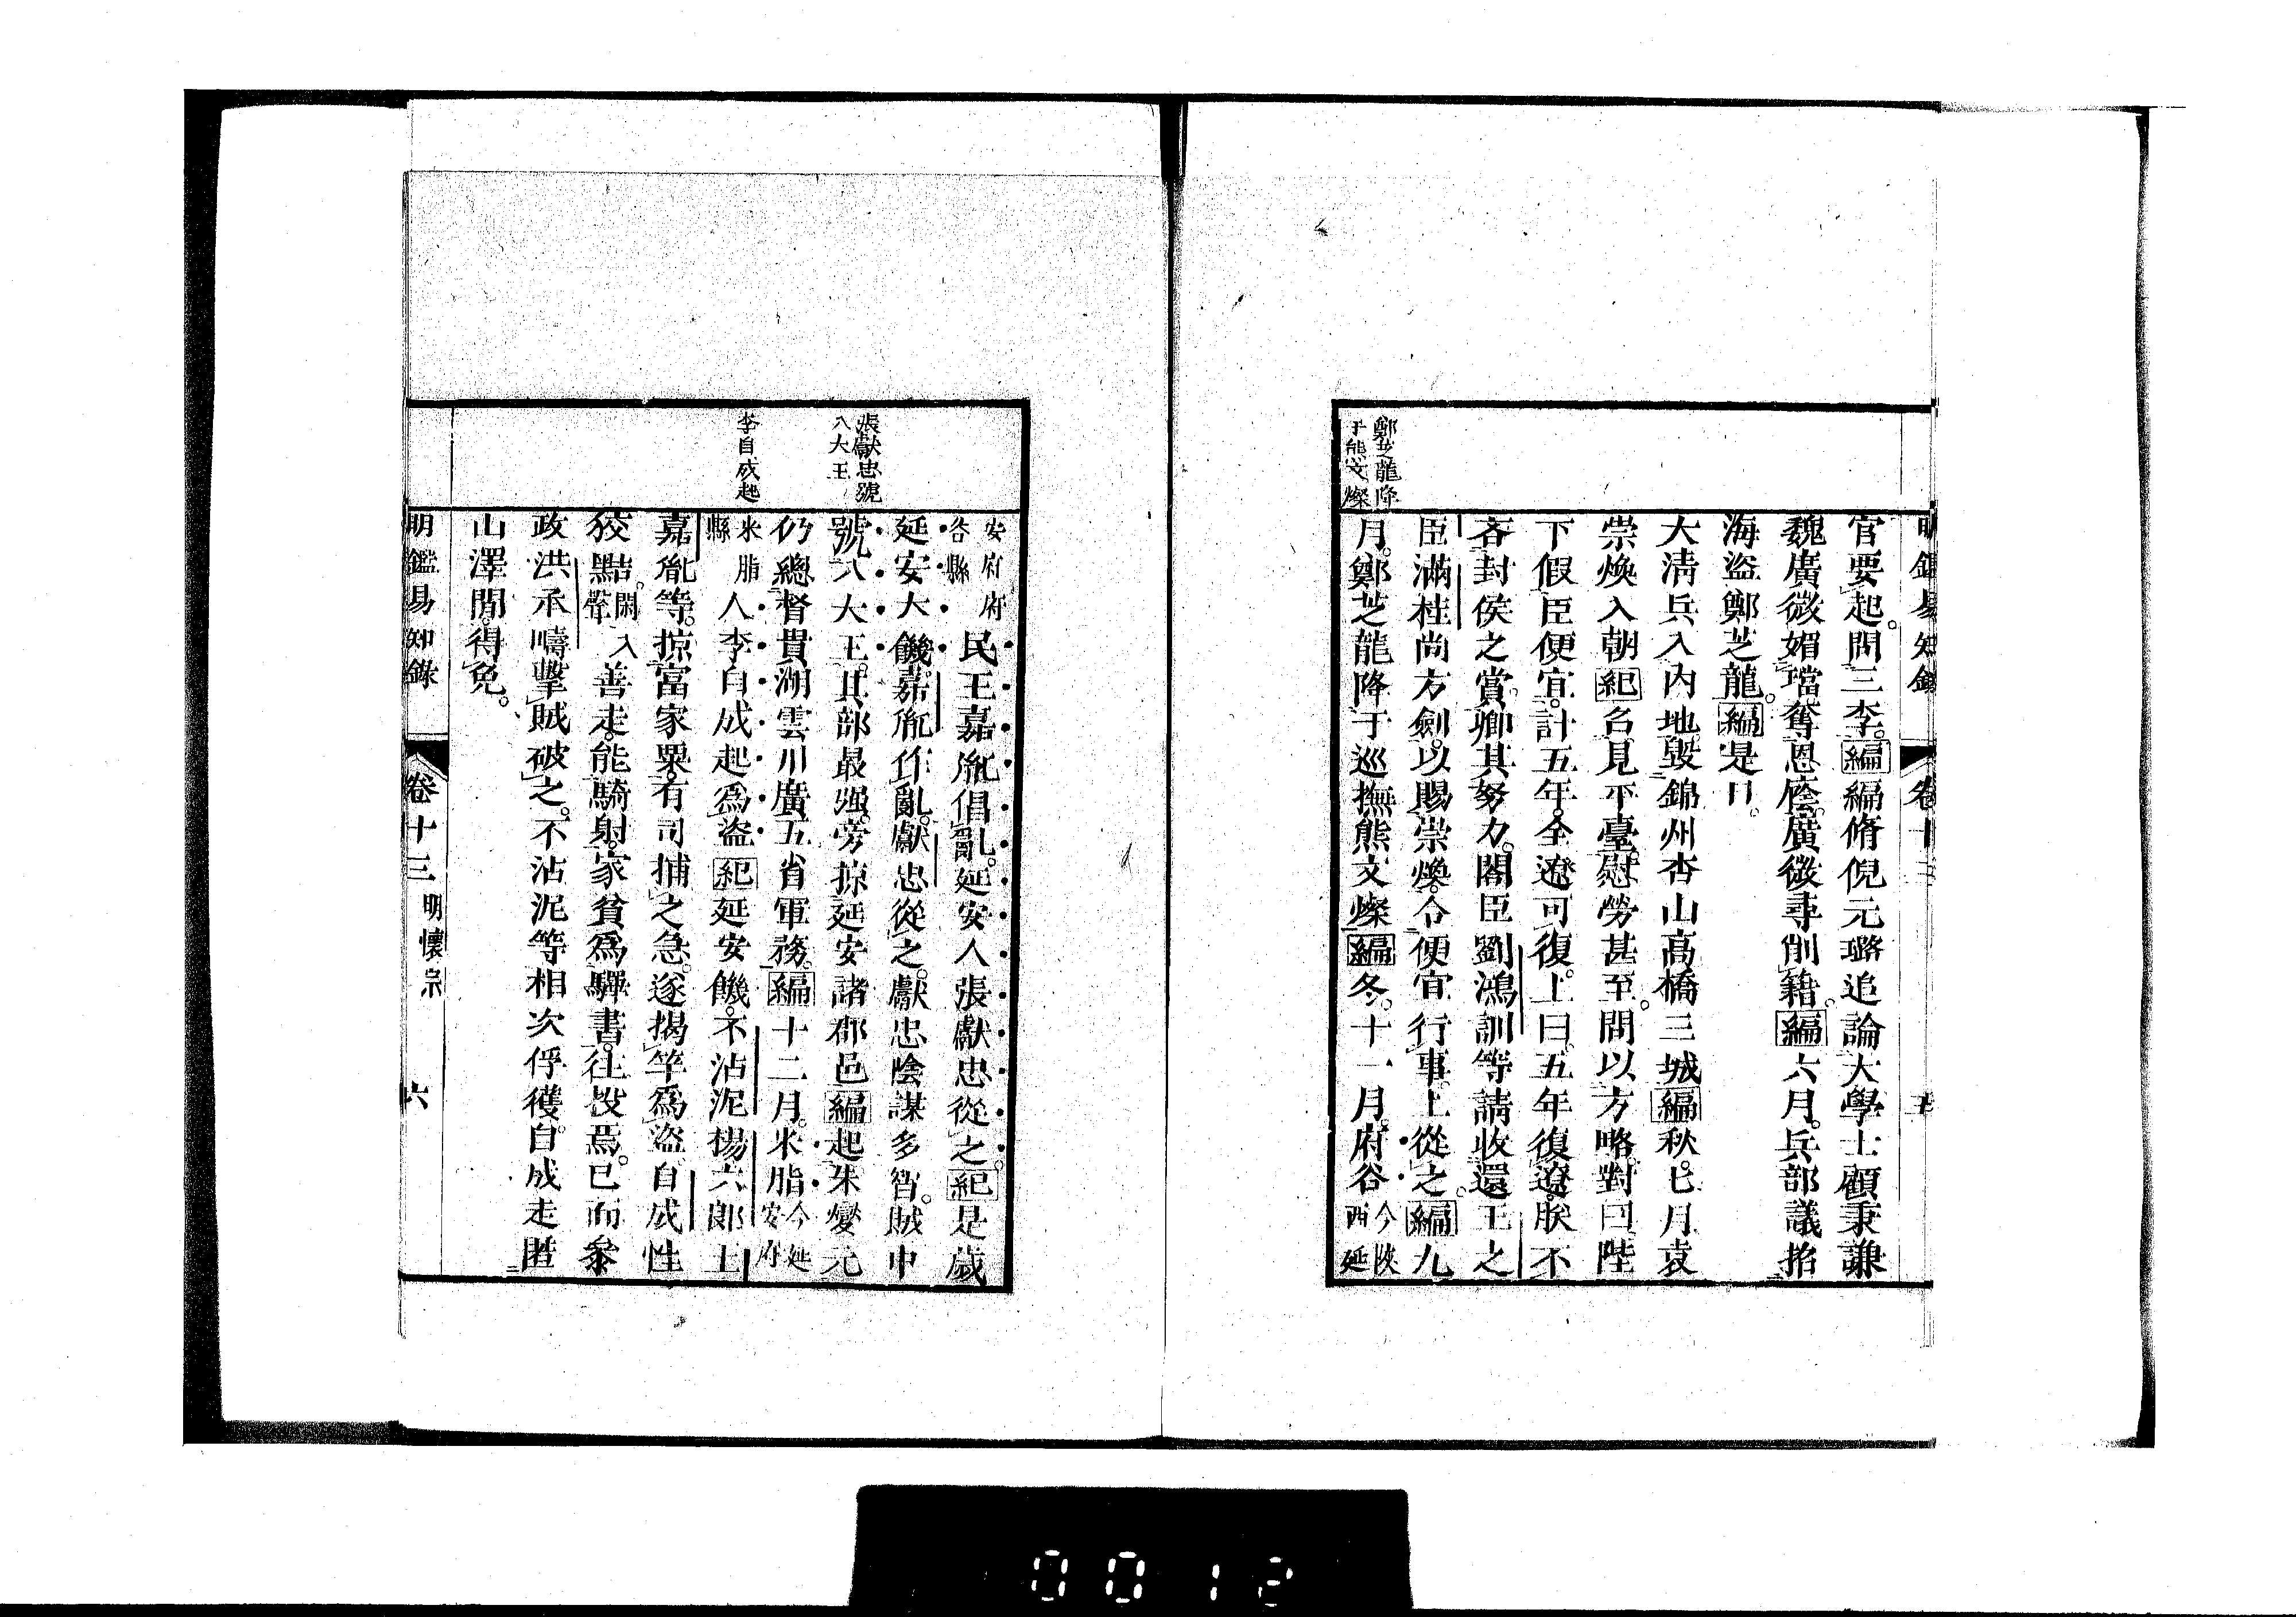 明鑑易知錄
卷十三
官要起問三李編編脩倪元璐追論大學士顧秉謙
魏廣微媚璫奪恩廕廣微尋削籍編六月兵部議招
海盜鄭芝龍編是月
大清兵入內地毀錦州杏山高橋三城編秋七月袁
崇煥入朝紀召見平臺慰勞甚至問以方略對曰陛
下假臣便宜計五年全遼可復上曰五年復遼朕不
吝封侯之賞卿其努力閣臣劉鴻訓等請收還王之
臣滿桂尚方劍以賜崇煥令便宜行事上從之編九
鄭芝龍降
于熊文燦
月鄭芝龍降于巡撫熊文燦編冬十一月府谷今陝西延
安府府谷縣民王嘉胤倡亂延安人張獻忠從之紀是歲
延安大饑嘉胤作亂獻忠從之獻忠陰謀多智賊中
張獻忠號
八大王
號八大王其部最强旁掠延安諸郡邑編起朱燮元
仍總督貴湖雲川廣五省軍務編十二月米脂今延安府
李自成起
米脂縣人李自成起為盜紀延安饑不沾泥揚六郎王
嘉胤等掠富家粟有司捕之急遂揭竿為盜自成性
狡黠閑入聲善走能騎射家貧為驛書往投焉已而參
政洪承疇擊賊破之不沾泥等相次俘獲自成走匿
山澤間得免
明鑑易知錄
卷十三
明懷宗
六
0012